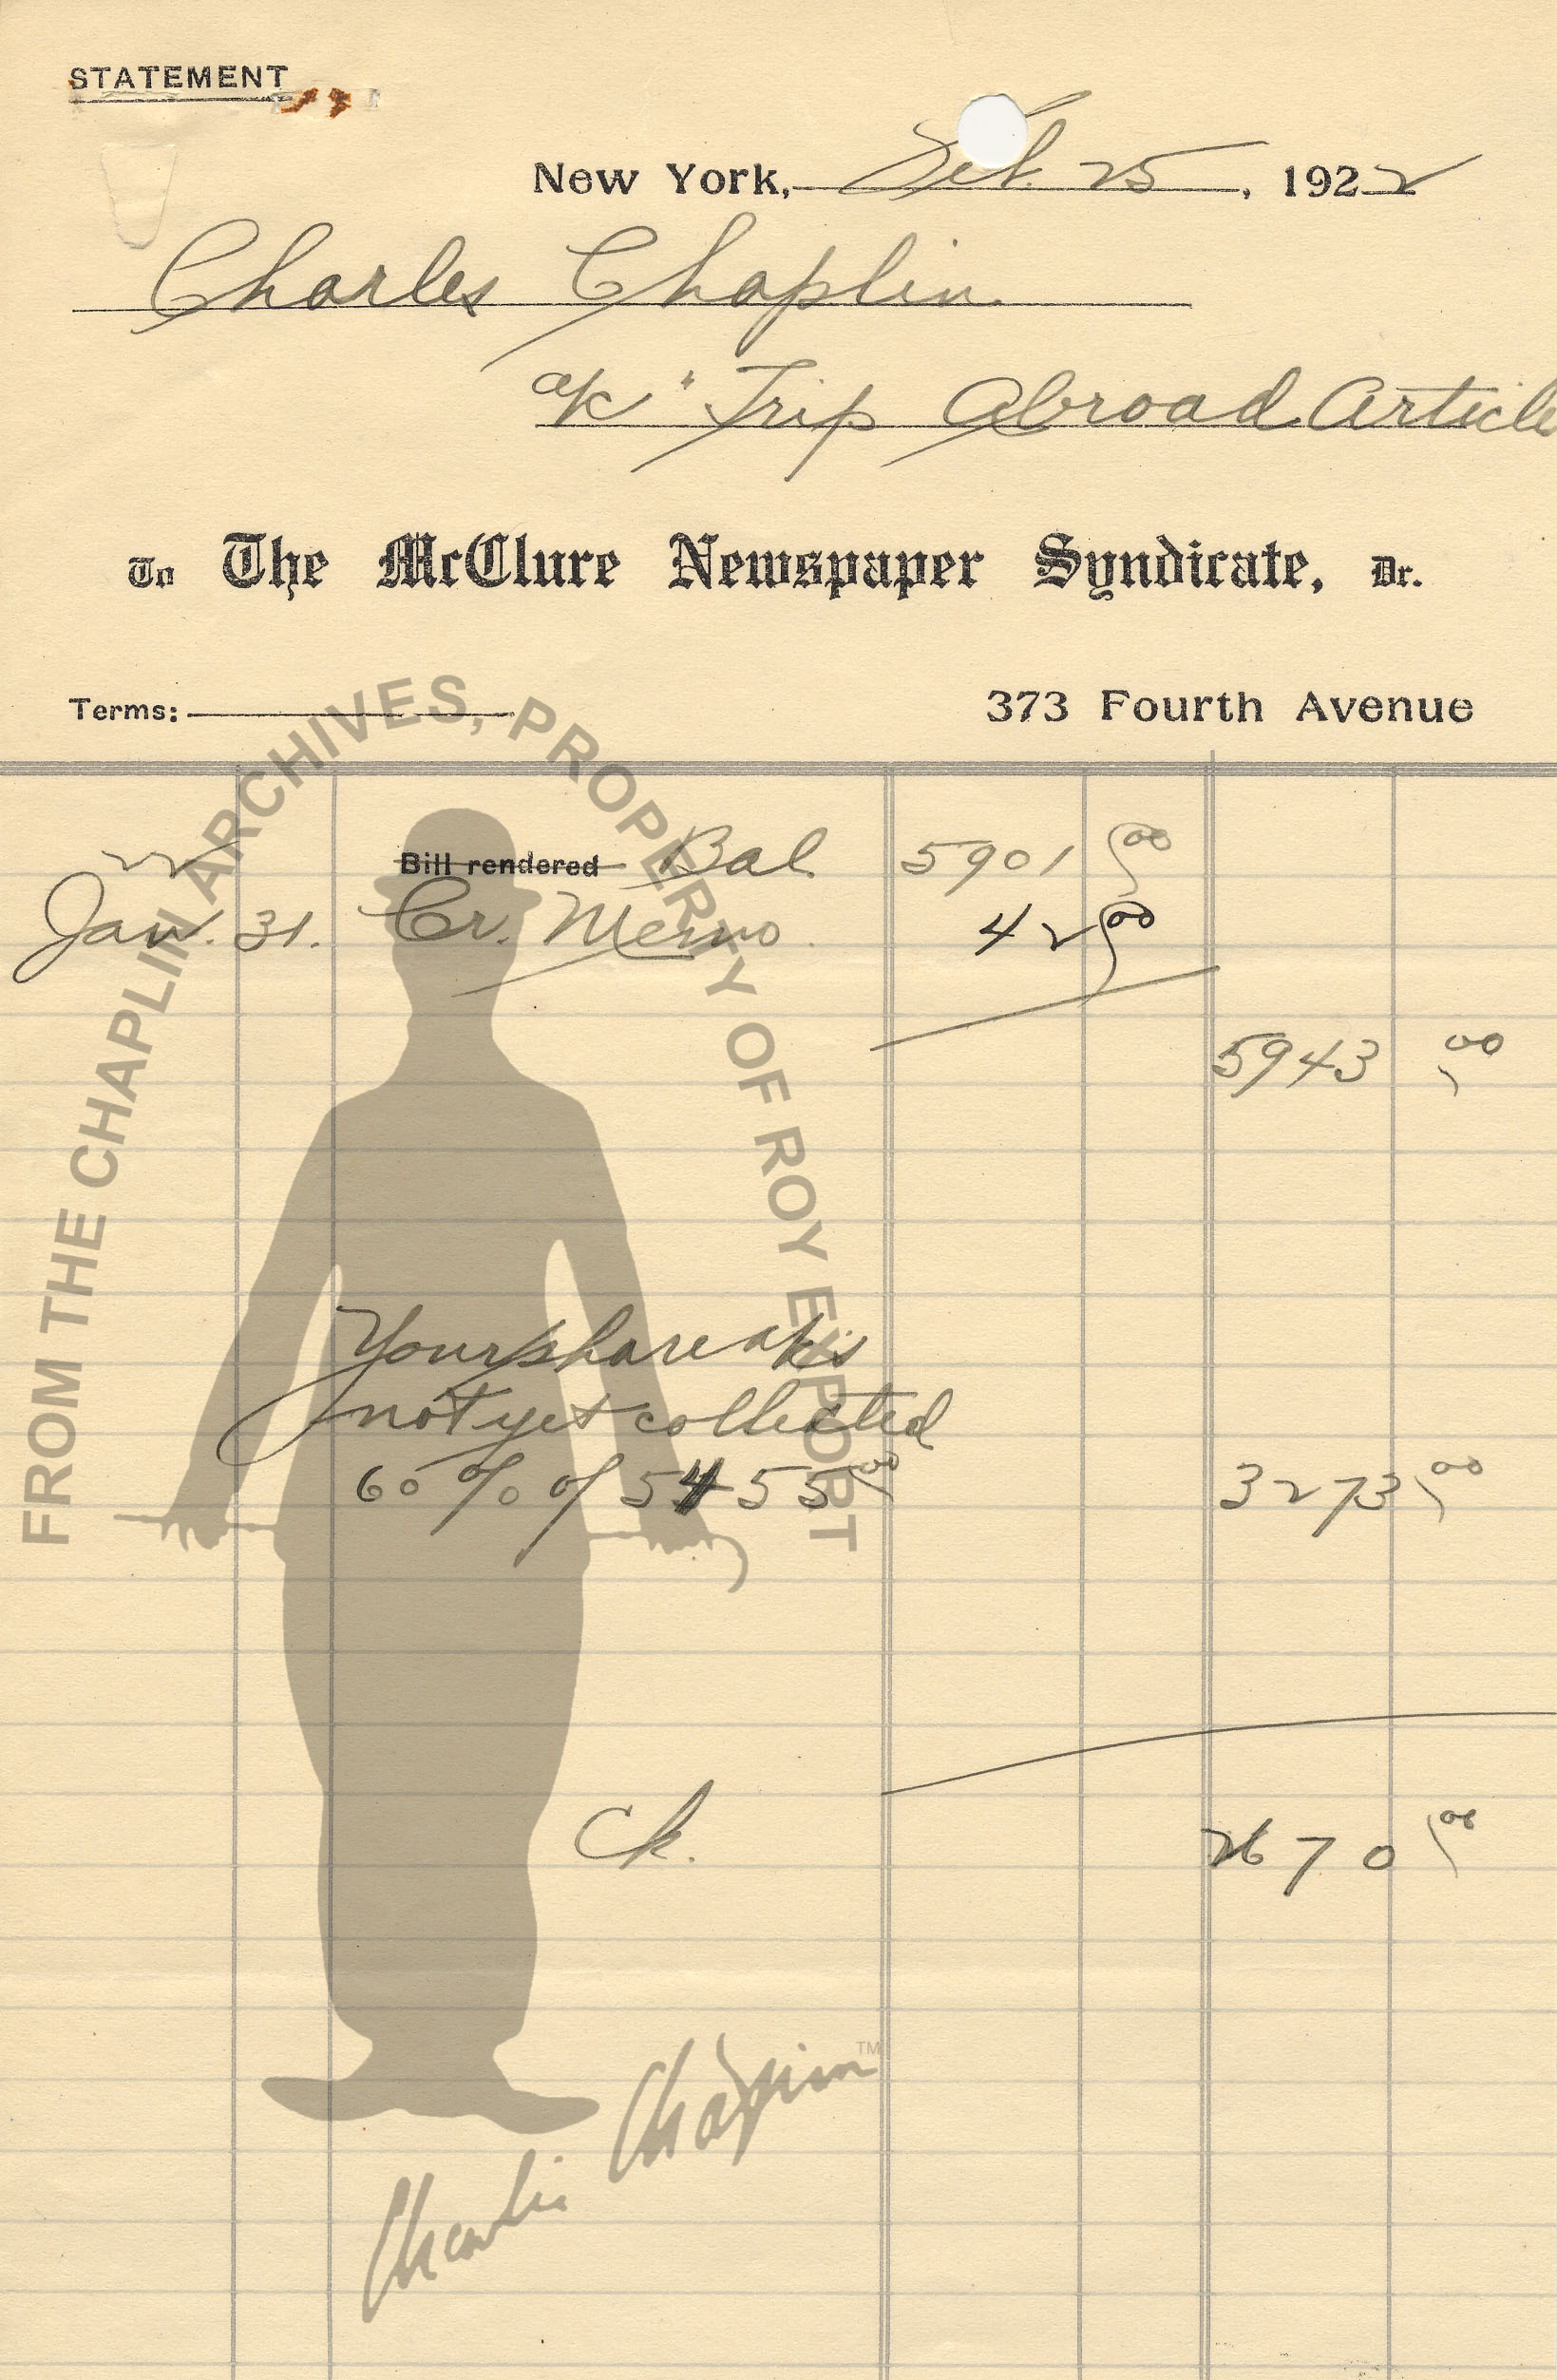 STATEMENT
New York, Feb. 25, 1922
Charles Chaplin
a/c "Trip Abroad Article
To The McClure Newspaper Syndicate, Dr.
Terms: 373 Fourth Avenue
22 Bill rendered Bal. 5901 00
Jan. 31. Cr. Memo. 42 00
5943 00
Your share a/cs
not yet collected
60% of 5455 00 3273 00
Ck. 2670 00
FROM THE CHAPLIN ARCHIVES, PROPERTY OF ROY EXPORT
Charlie Chaplin TM